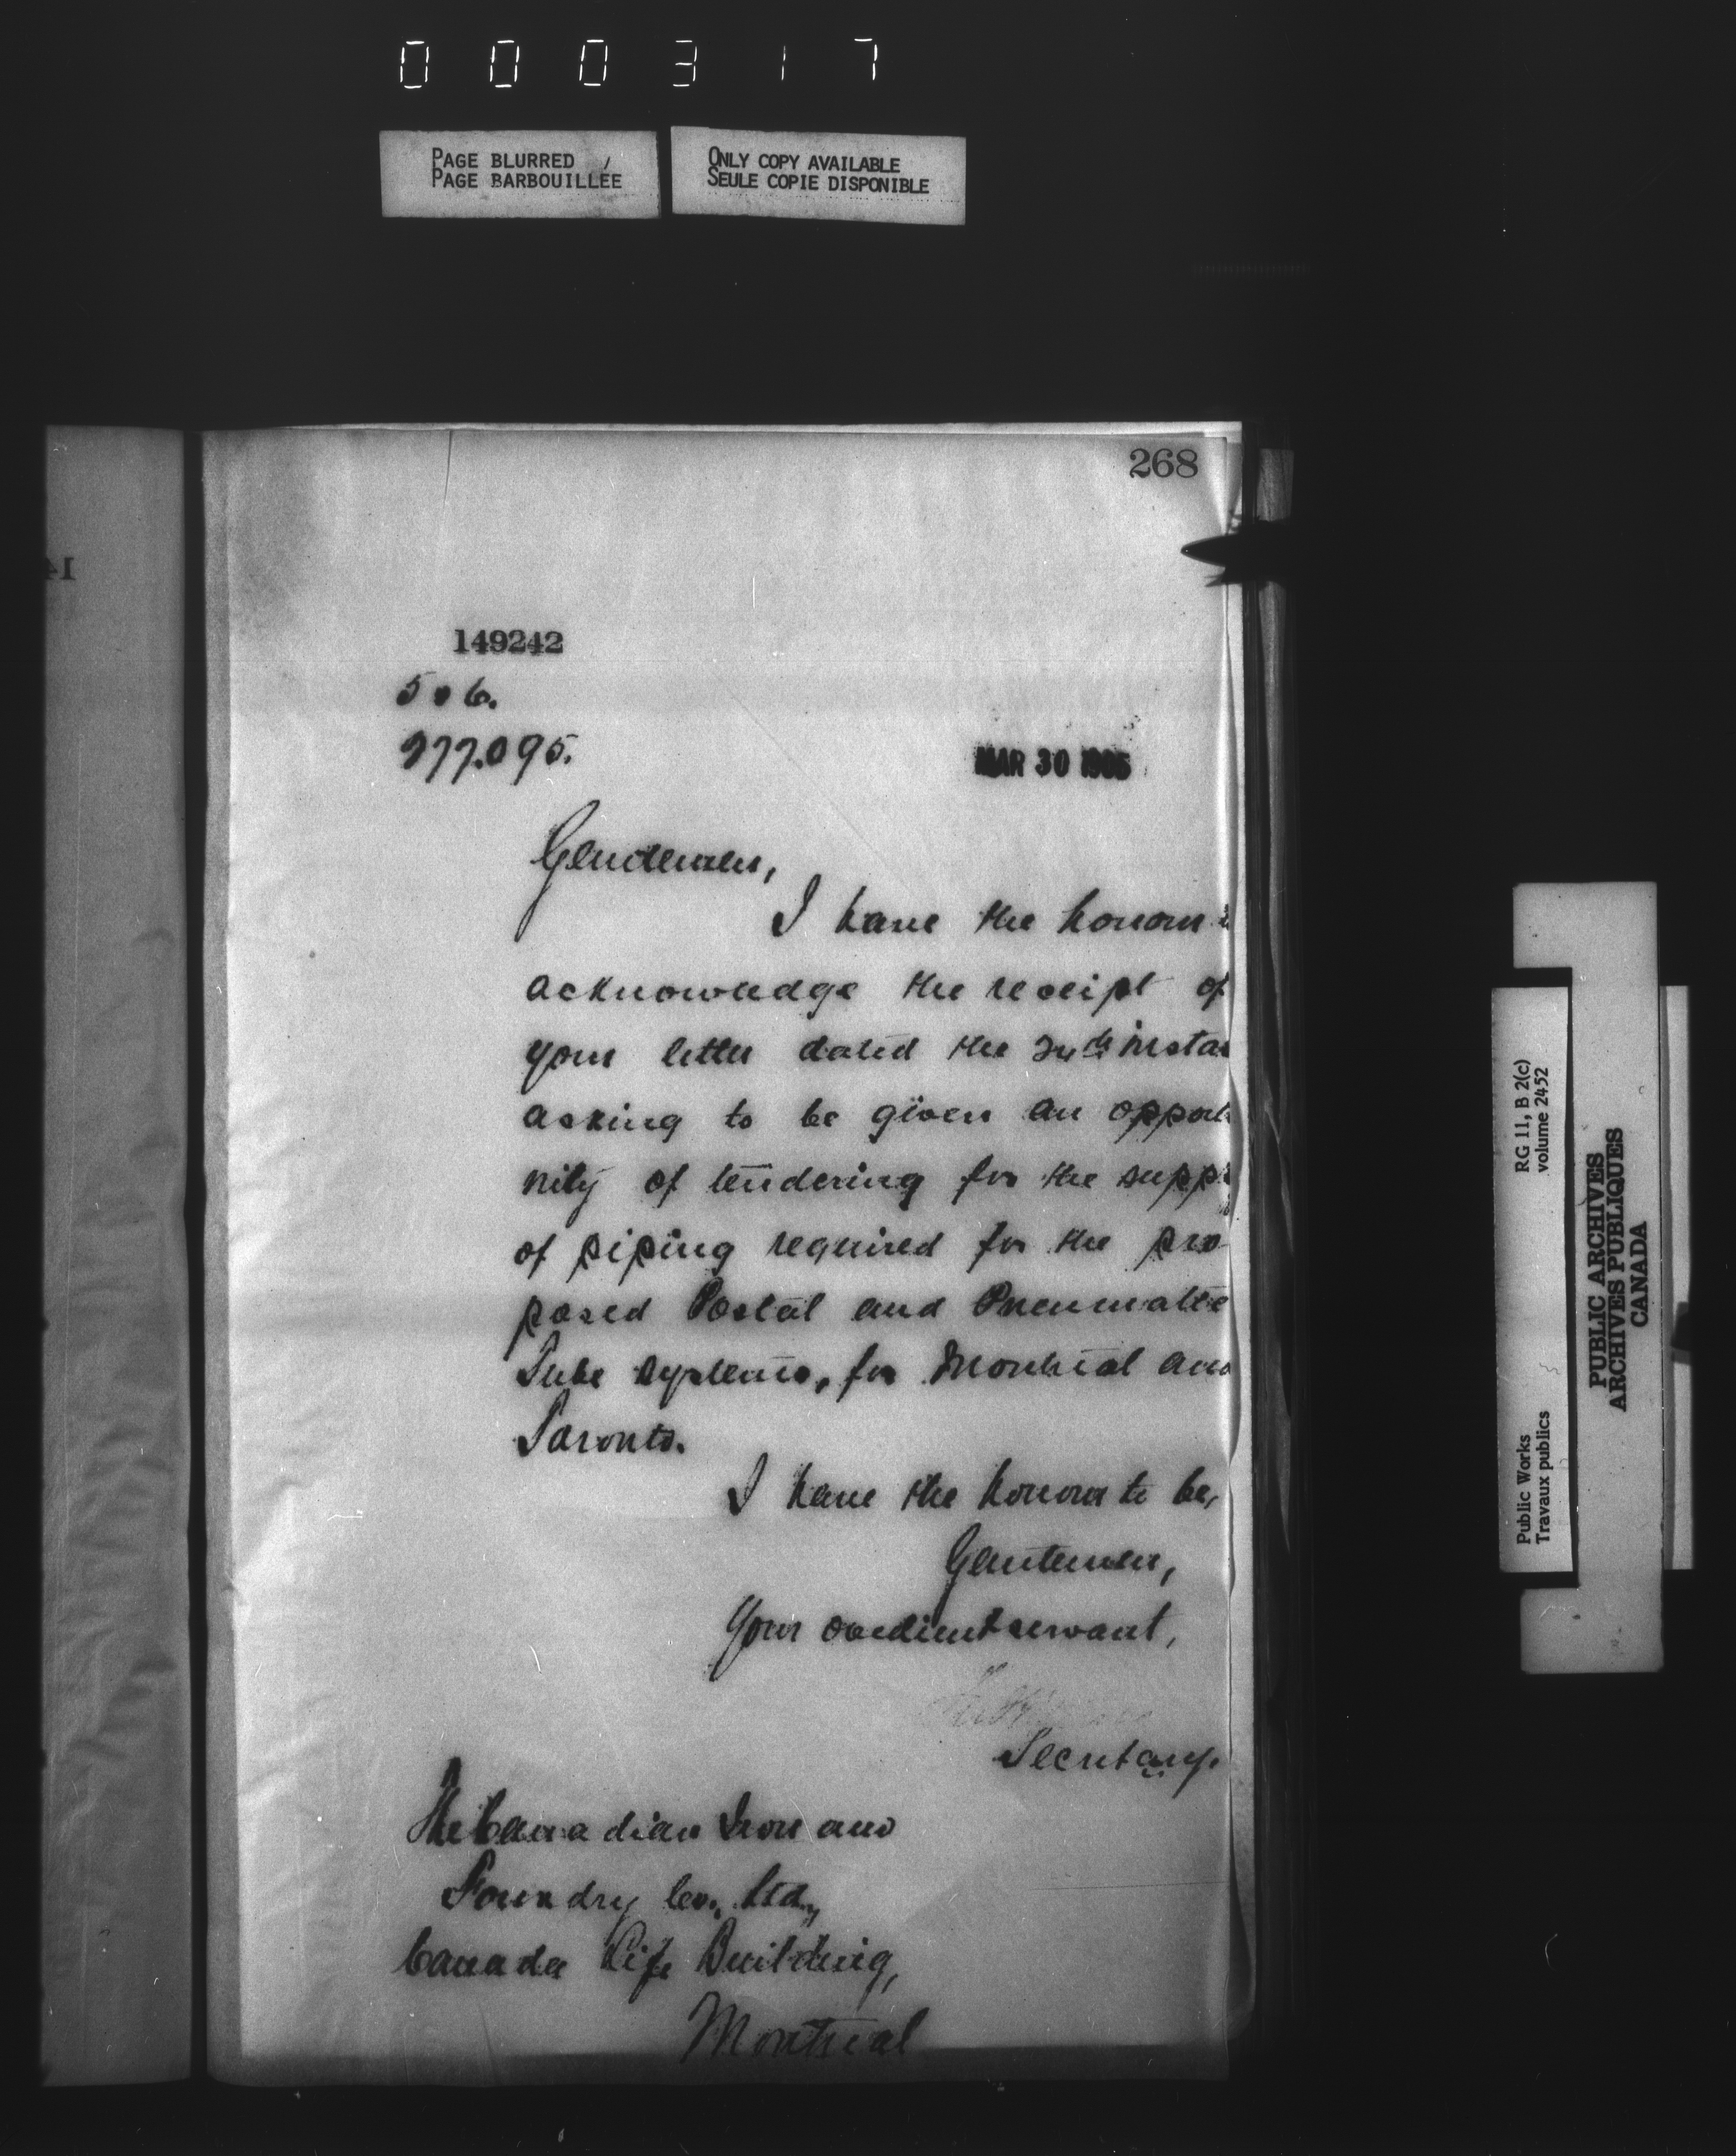 000317
PAGE BLURRED
PAGE BARBOUILLÉE
ONLY COPY AVAILABLE
SEULE COPIE DISPONIBLE
268
149242
506.
277.095.
MAR 30 1905
Gentlemen,
I have the honour
acknowledge the receipt of
your letter dated the instan
asking to be given an opport
nity of tendering for the suppl
of piping required for the pro-
posed Postal and Pneumatic
Tube systems, for Montreal and
Toronto.
I have the honour to be,
Gentlemen,
Your obedient servant,
Secretary.
The Canadian Iron and
Foundry Co., Ltd.,
Canada Life Building,
Montreal
RG 11, B 2(c)
volume 2452
Public Works
Travaux publics
PUBLIC ARCHIVES
ARCHIVES PUBLIQUES
CANADA